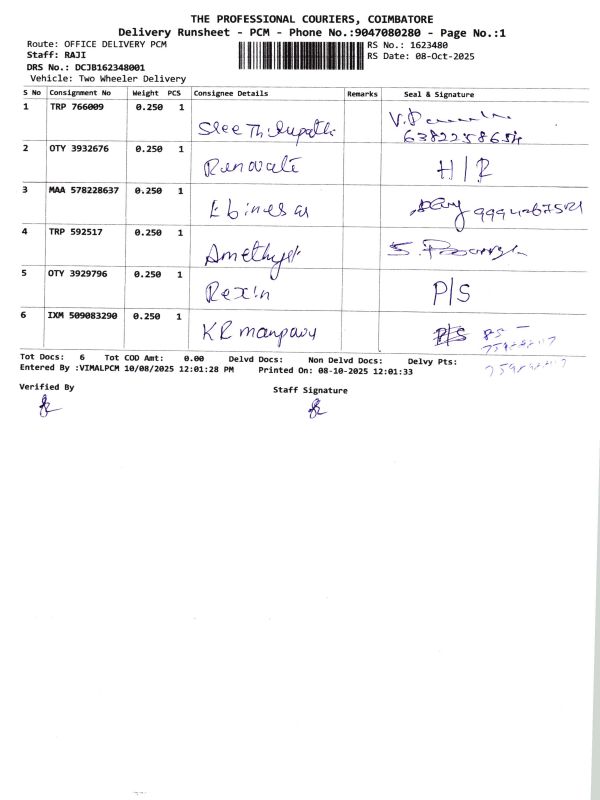 THE PROFESSIONAL COURIERS, COIMBATORE
Delivery Runsheet - PCM - Phone No.:9047080280 - Page No.:1
Route: OFFICE DELIVERY PCM RS No.: 1623480
Staff: RAJI RS Date: 08-Oct-2025
DRS No.: DCJB162348001
Vehicle: Two Wheeler Delivery
S No Consignment No Weight PCS Consignee Details Remarks Seal & Signature
1 TRP 766009 0.250 1 Sree Thirupathi
6382258654
2 OTY 3932676 0.250 1 Renovate H/R
3 MAA 578228637 0.250 1 Ebinesar
4 TRP 592517 0.250 1 Amethyst S.
5 OTY 3929796 0.250 1 Rexin P/S
6 IXM 509083290 0.250 1 KR P/S 85
Tot Docs: 6 Tot COD Amt: 0.00 Delvd Docs: Non Delvd Docs: Delvy Pts:
Entered By :VIMALPCM 10/08/2025 12:01:28 PM Printed On: 08-10-2025 12:01:33
Verified By Staff Signature